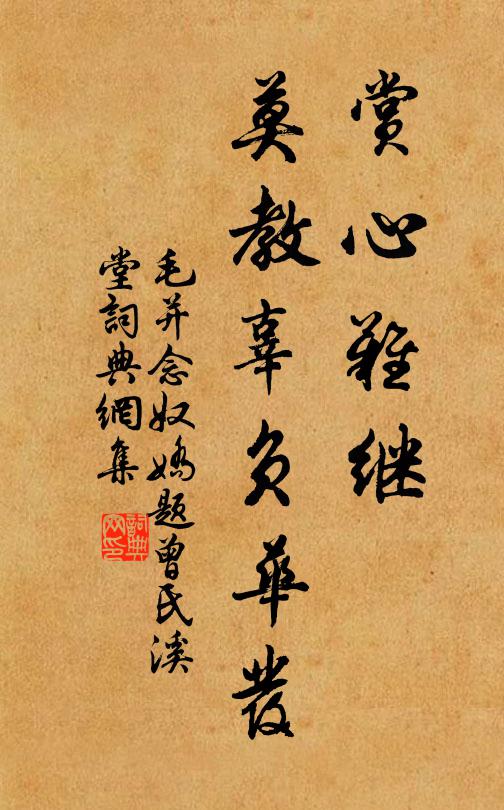 赏心难继
莫教辜负华发
毛并念奴娇题曾氏溪
堂词典网集
词典网印